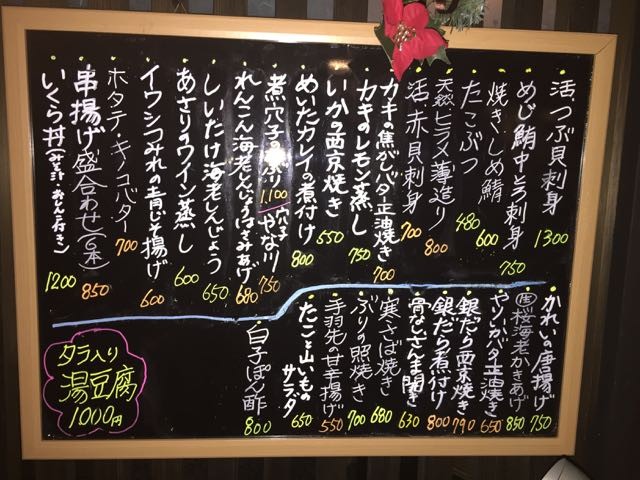 活つぶ貝刺身 1300
めじ鮪中とろ刺身 750
焼きしめ鯖 600
たこぶつ 480
天然ヒラメ薄造り 800
活赤貝刺身 700
カキの焦がしバタ正油焼き 700
カキのレモン蒸し 750
いかの西京焼き 550
めいたカレイの煮付け 800
煮穴子の炙り 1,100
穴子やな川 750
れんこん海老しんじょうはさみあげ 680
しいたけ海老しんじょう 650
あさりのワイン蒸し 600
イワシつみれの青じそ揚げ 600
ホタテ・キノコバター 700
串揚げ盛合わせ(6本) 850
いくら丼(みそ汁・おしんこ付き) 1200
かれいの唐揚げ 750
桜海老かきあげ 850
ヤリイカバタ正油焼き 650
銀だら西京焼き 790
銀だら煮付け 800
骨なしさんま開き 630
寒さば焼き 680
ぶりの照焼き 700
手羽先の甘辛揚げ 550
たこと山いものサラダ 650
白子ぽん酢 800
タラ入り
湯豆腐
1000円